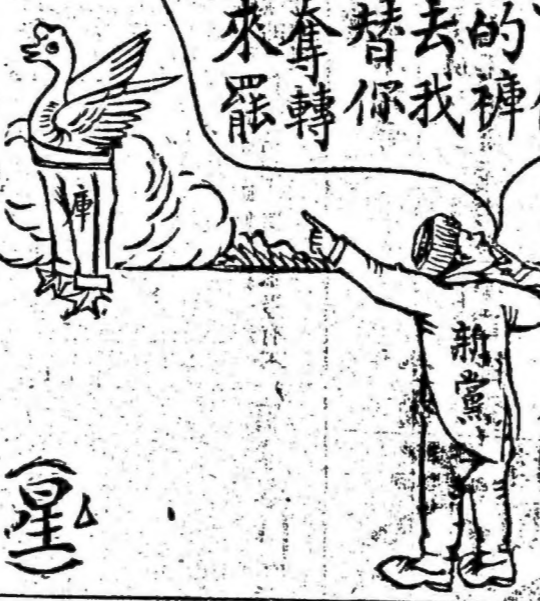 的褲
去我
替你
奪轉
來罷
庫
新黨
(星)